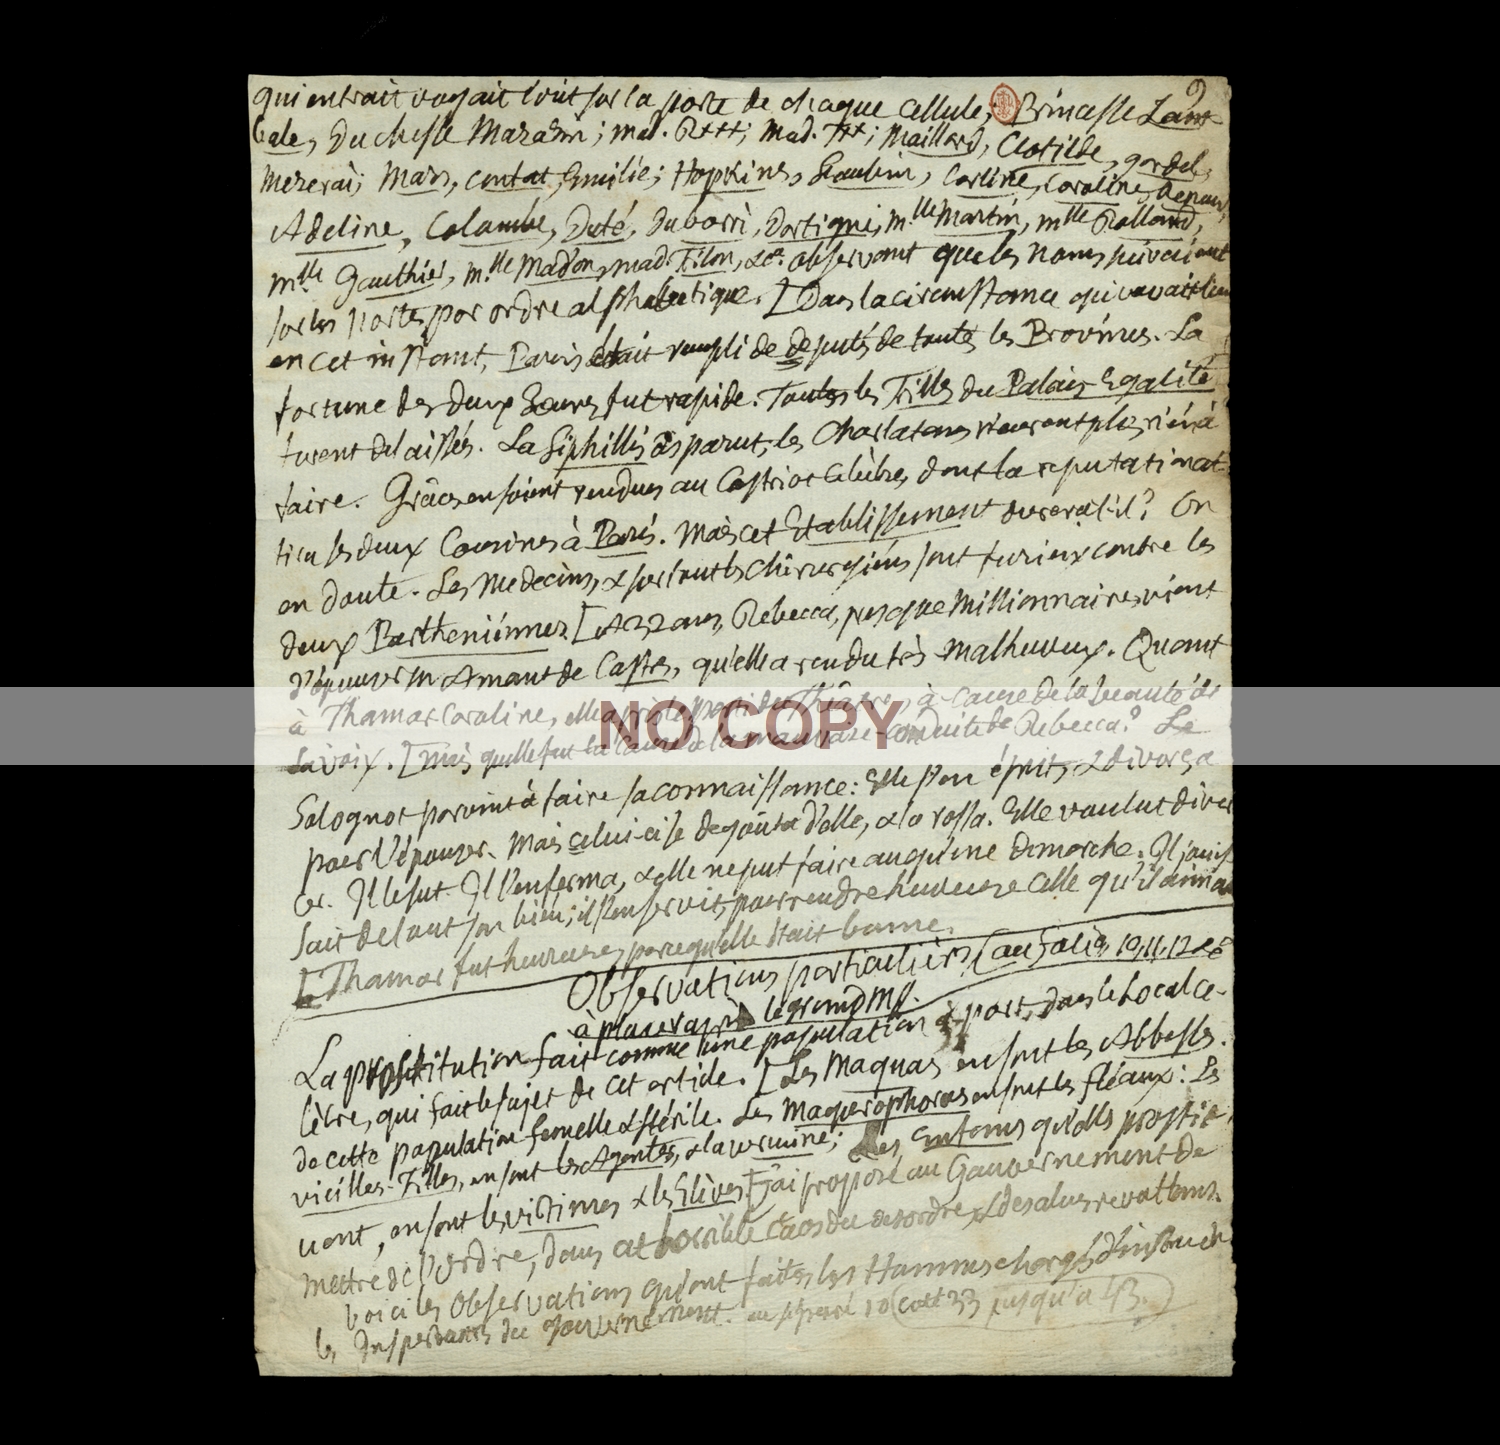 9
qui entrait voyait lout sur la porte de chaque Cellule, Princesse Lam-
bale, Duchesse Mazarin; mad. R***; Mad. T**; Maillard, Clotilde, gardel,
Mezerai; Mars, contat, Emilie; Hopkins, Saulnier, Carline, Caroline, Renaud,
Adeline, Colombe, Duté, Dubarri, Dartigni, M.lle Martin, mlle Rolland,
mlle Gauthier, m.lle Madon, mad. Filon, &c.a observant que les noms suivaient
sur les portes par ordre alphabetique. [Dans la circonstance qui avait lieu
en cet instant, Paris était rempli de deputés de toutes les Provinces. La
fortune des deux Sœurs fut rapide. Toutes les Filles du Palais-Egalité
furent delaissées. La Siphillis disparut; les Charlatans n'eurent plus rien à
faire. Grâces en soient rendues au Castrios Celèbre, dont la reputation at-
tira les deux Cousines à Paris. Mais cet Etablissement durerat-il? On
en doute. Les Medecins, & surtout les Chirurgiens sont furieux contre les
deux Partheniénnes. [A 22 ans, Rebecca, presque Millionnaire, vient
d'épouser un Amant de Castres, qu'elle a rendu très malheureux. Quant
à Thamar Caroline, elle a pris le parti du Théatre, à-cause de la beauté de
sa voix. [Mais quelle fut la cause de la mauvaise conduite de Rebecca? Le
Solognot parvint à faire sa connaissance: Elle s'en éprit, & divorça
pour l'épouser. Mais celui-ci se degoûta d'elle, & la rossa. Elle voulut divor-
cer. Il le sut. Il l'enferma, & elle ne put faire auqu'une demarche. Il jouis-
sait de tout son bién; il s'en servit, pour rendre heureuse celle qu'il aimait
[Thamar fut heureuse, parcequ'elle était bonne.
Observations particulières, (au Falio 10, 11, 12 &c
à placer après le grand Mss.
La prostitution fait comme une population à part, dans le Local cé-
lèbre, qui fait le sujet de cet article. [Les Maquas en sont les Abbesses.
de cette population femelle & stérile. Les Maquerophores en sont les fléaux: Les
vieilles-Filles, en sont les Agentes, & la vermine; Les Enfans qu'elles prosti-
uent, en sont les victimes & les Elèves. [J'ai proposé au Gouvernement de
mettre de l'ordre, dans cet horrible Caos du desordre & des abus revoltans.
Voici les Observations qu'ont faites les Hommes chargés d'instruire
les Inspecteurs du gouvernement. 10 (cott 33 jusqu'à 43.)
NO COPY